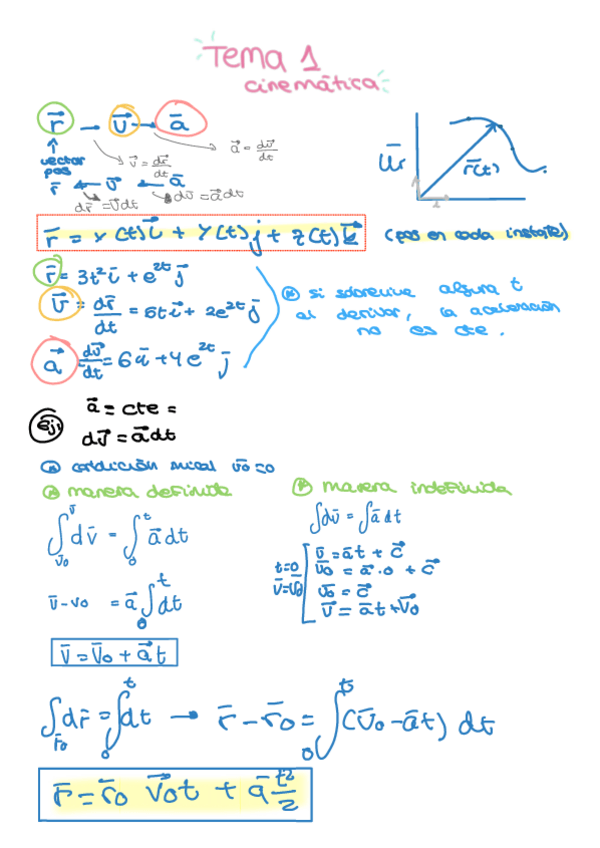 Tema 1
cinemática
r⃗ → v⃗ → a⃗
vector pos
v⃗ = dr⃗/dt
a⃗ = dv⃗/dt
r⃗ ← v⃗ ← a⃗
dr⃗ = v⃗dt
dv⃗ = a⃗dt
r⃗(t)
r⃗ = x(t)i⃗ + y(t)j + z(t)k⃗ (pos en cada instante)
r⃗ = 3t²i⃗ + e^2t j⃗
v⃗ = dr⃗/dt = 6ti⃗ + 2e^2t j⃗
a⃗ dv⃗/dt = 6a⃗ + 4e^2t j⃗
si sobrevive alguna t
al derivar, la aceleración
no es cte.
Ej:
a⃗ = cte =
dv⃗ = a⃗dt
condición inicial v̄0=0
manera definida
∫_{v̄0}^{v̄} dv̄ = ∫_0^t a⃗dt
v̄ - v0 = a⃗∫_0^t dt
v̄ = v̄0 + a⃗t
manera indefinida
∫dv̄ = ∫a⃗dt
t=0
v̄=v̄0
v̄ = a⃗t + c⃗
v̄0 = a⃗·0 + c⃗
v̄0 = c⃗
v⃗ = a̅t + v⃗0
∫_{r̄0} dr̄ = ∫_0^t dt → r̄ - r̄0 = ∫_0^t (v̄0 - āt) dt
r̄ = r̄0 v⃗0t + ā t²/2